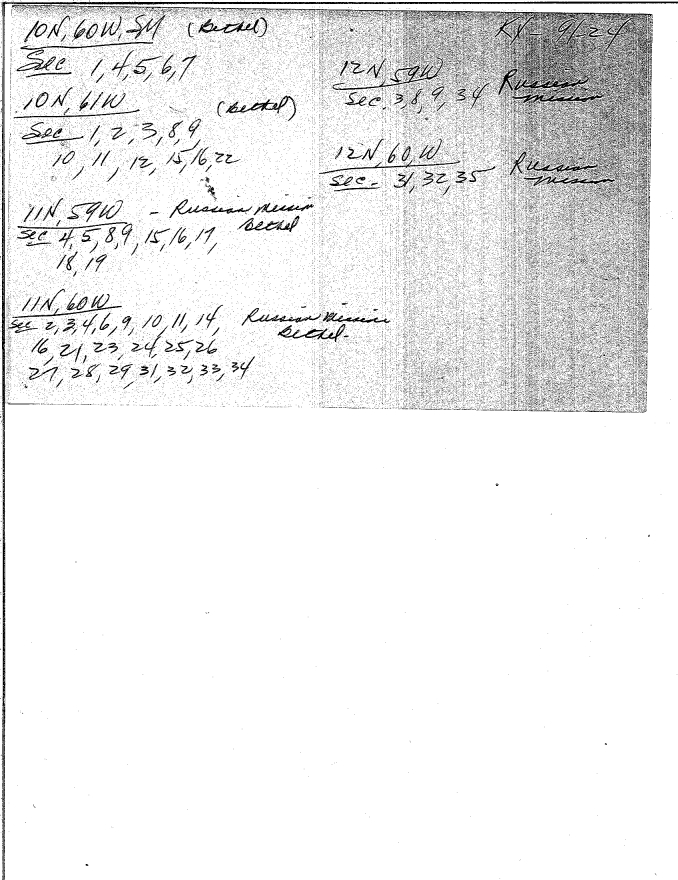 10N, 60W, SM (Bethel)
Sec 1, 4, 5, 6, 7
10N, 61W (Bethel)
Sec 1, 2, 3, 8, 9
10, 11, 12, 15, 16, 22
11N, 59W - Russian Mission
Bethel
Sec 4, 5, 8, 9, 15, 16, 17,
18, 19
11N, 60W
Sec 2, 3, 4, 6, 9, 10, 11, 14, Russian Mission
Bethel.
16, 21, 23, 24, 25, 26
27, 28, 29, 31, 32, 33, 34
KX- 91-24
12N, 59W
Sec. 3, 8, 9, 34 Russian
Mission
12N, 60, W
Sec. - 31, 32, 35 Russian
Mission